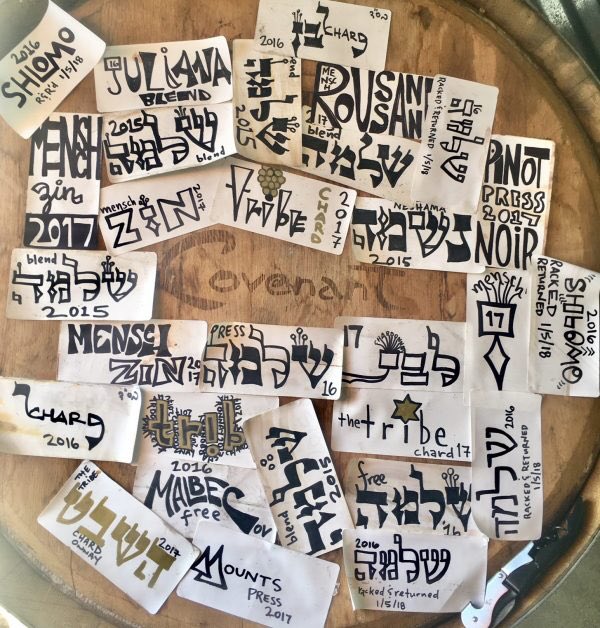 2016
SHLOMO
R&R'd 1/5/18
16
JULIANA
BLEND
blend
שלמה
2015
2016
CHARD
MENSCH
17
blend
שלמה
RACKED & RETURNED 1/5/18
שלמה
16
PINOT
PRESS
2017
NOIR
MENSCH
zin
2017
2015
שלמה
blend
mensch
ZIN
2017
Tribe
CHARD
2017
NESHAMA
2015
Covenant
blend
שלמה
2015
mensch
17
2016
SHLOMO
RACKED
RETURNED 1/5/18
MENSCH
ZIN
2017
PRESS
שלמה
16
17
לבן
CHARD
2016
trib
the tribe
chard 17
2016
שלמה
RACKED & RETURNED
1/5/18
2016
MALBEC
free
COV
2015
שלמה
blend
free
שלמה
'16
THE TRIBE
2017
CHARD
MOUNTS
PRESS
2017
2016
שלמה
racked & returned
1/5/18